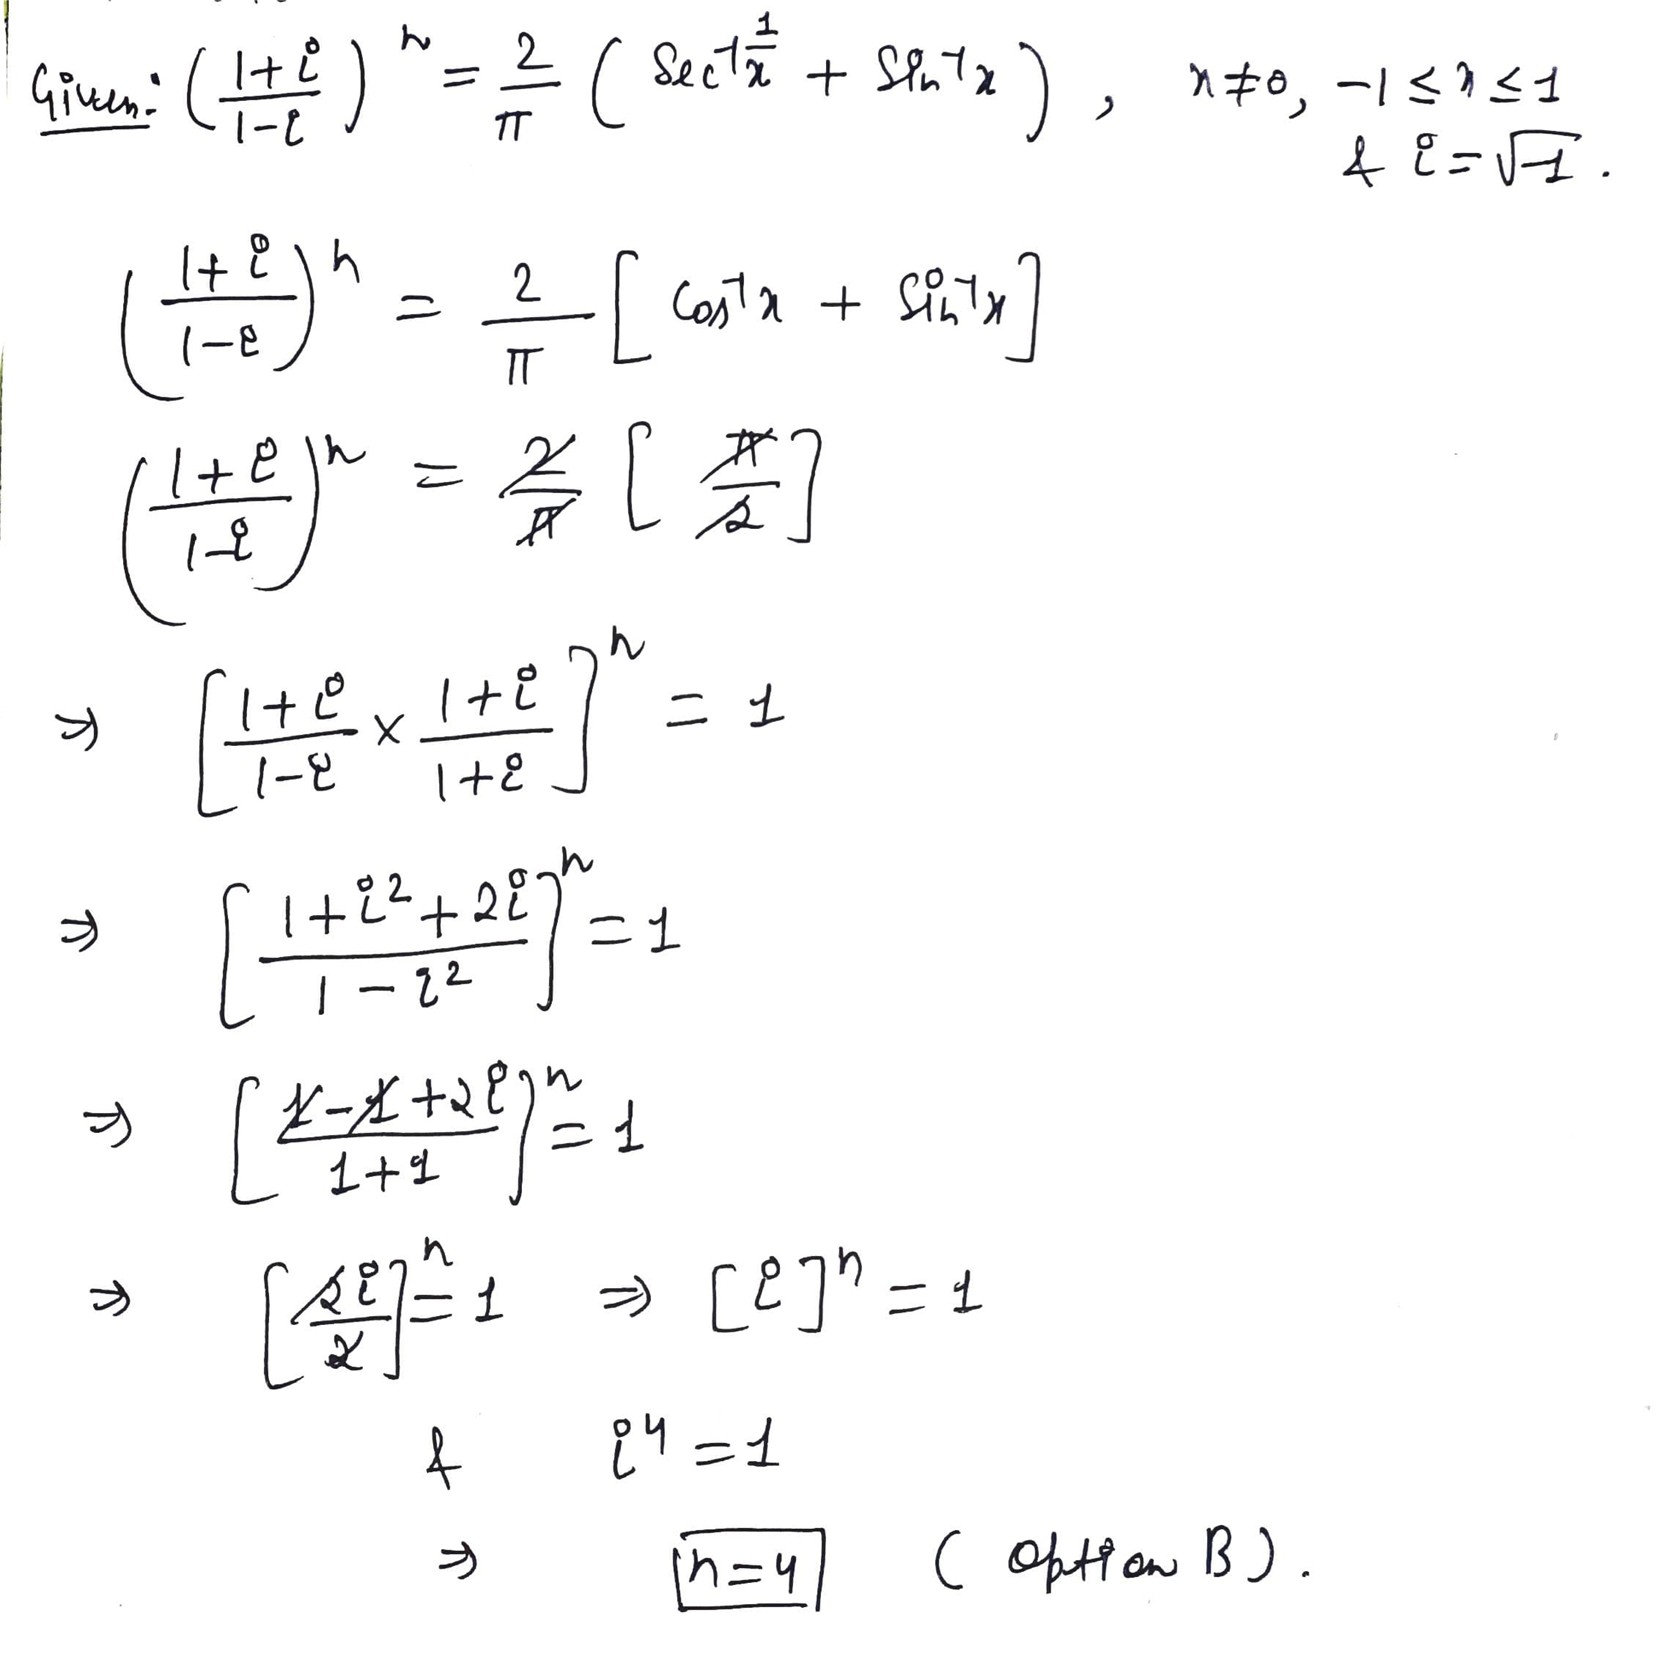 Given: ((1+i)/(1-i))^n = 2/π (Sec⁻¹ 1/x + Sin⁻¹x), x≠0, -1≤x≤1
& i=√-1.
((1+i)/(1-i))^n = 2/π [Cos⁻¹x + Sin⁻¹x]
((1+i)/(1-i))^n = 2/π [π/2]
⇒ [(1+i)/(1-i) × (1+i)/(1+i)]^n = 1
⇒ [(1+i²+2i)/(1-i²)]^n = 1
⇒ [(1-1+2i)/(1+1)]^n = 1
⇒ [2i/2]^n = 1 ⇒ [i]^n = 1
& i⁴ = 1
⇒ n=4 (Option B).